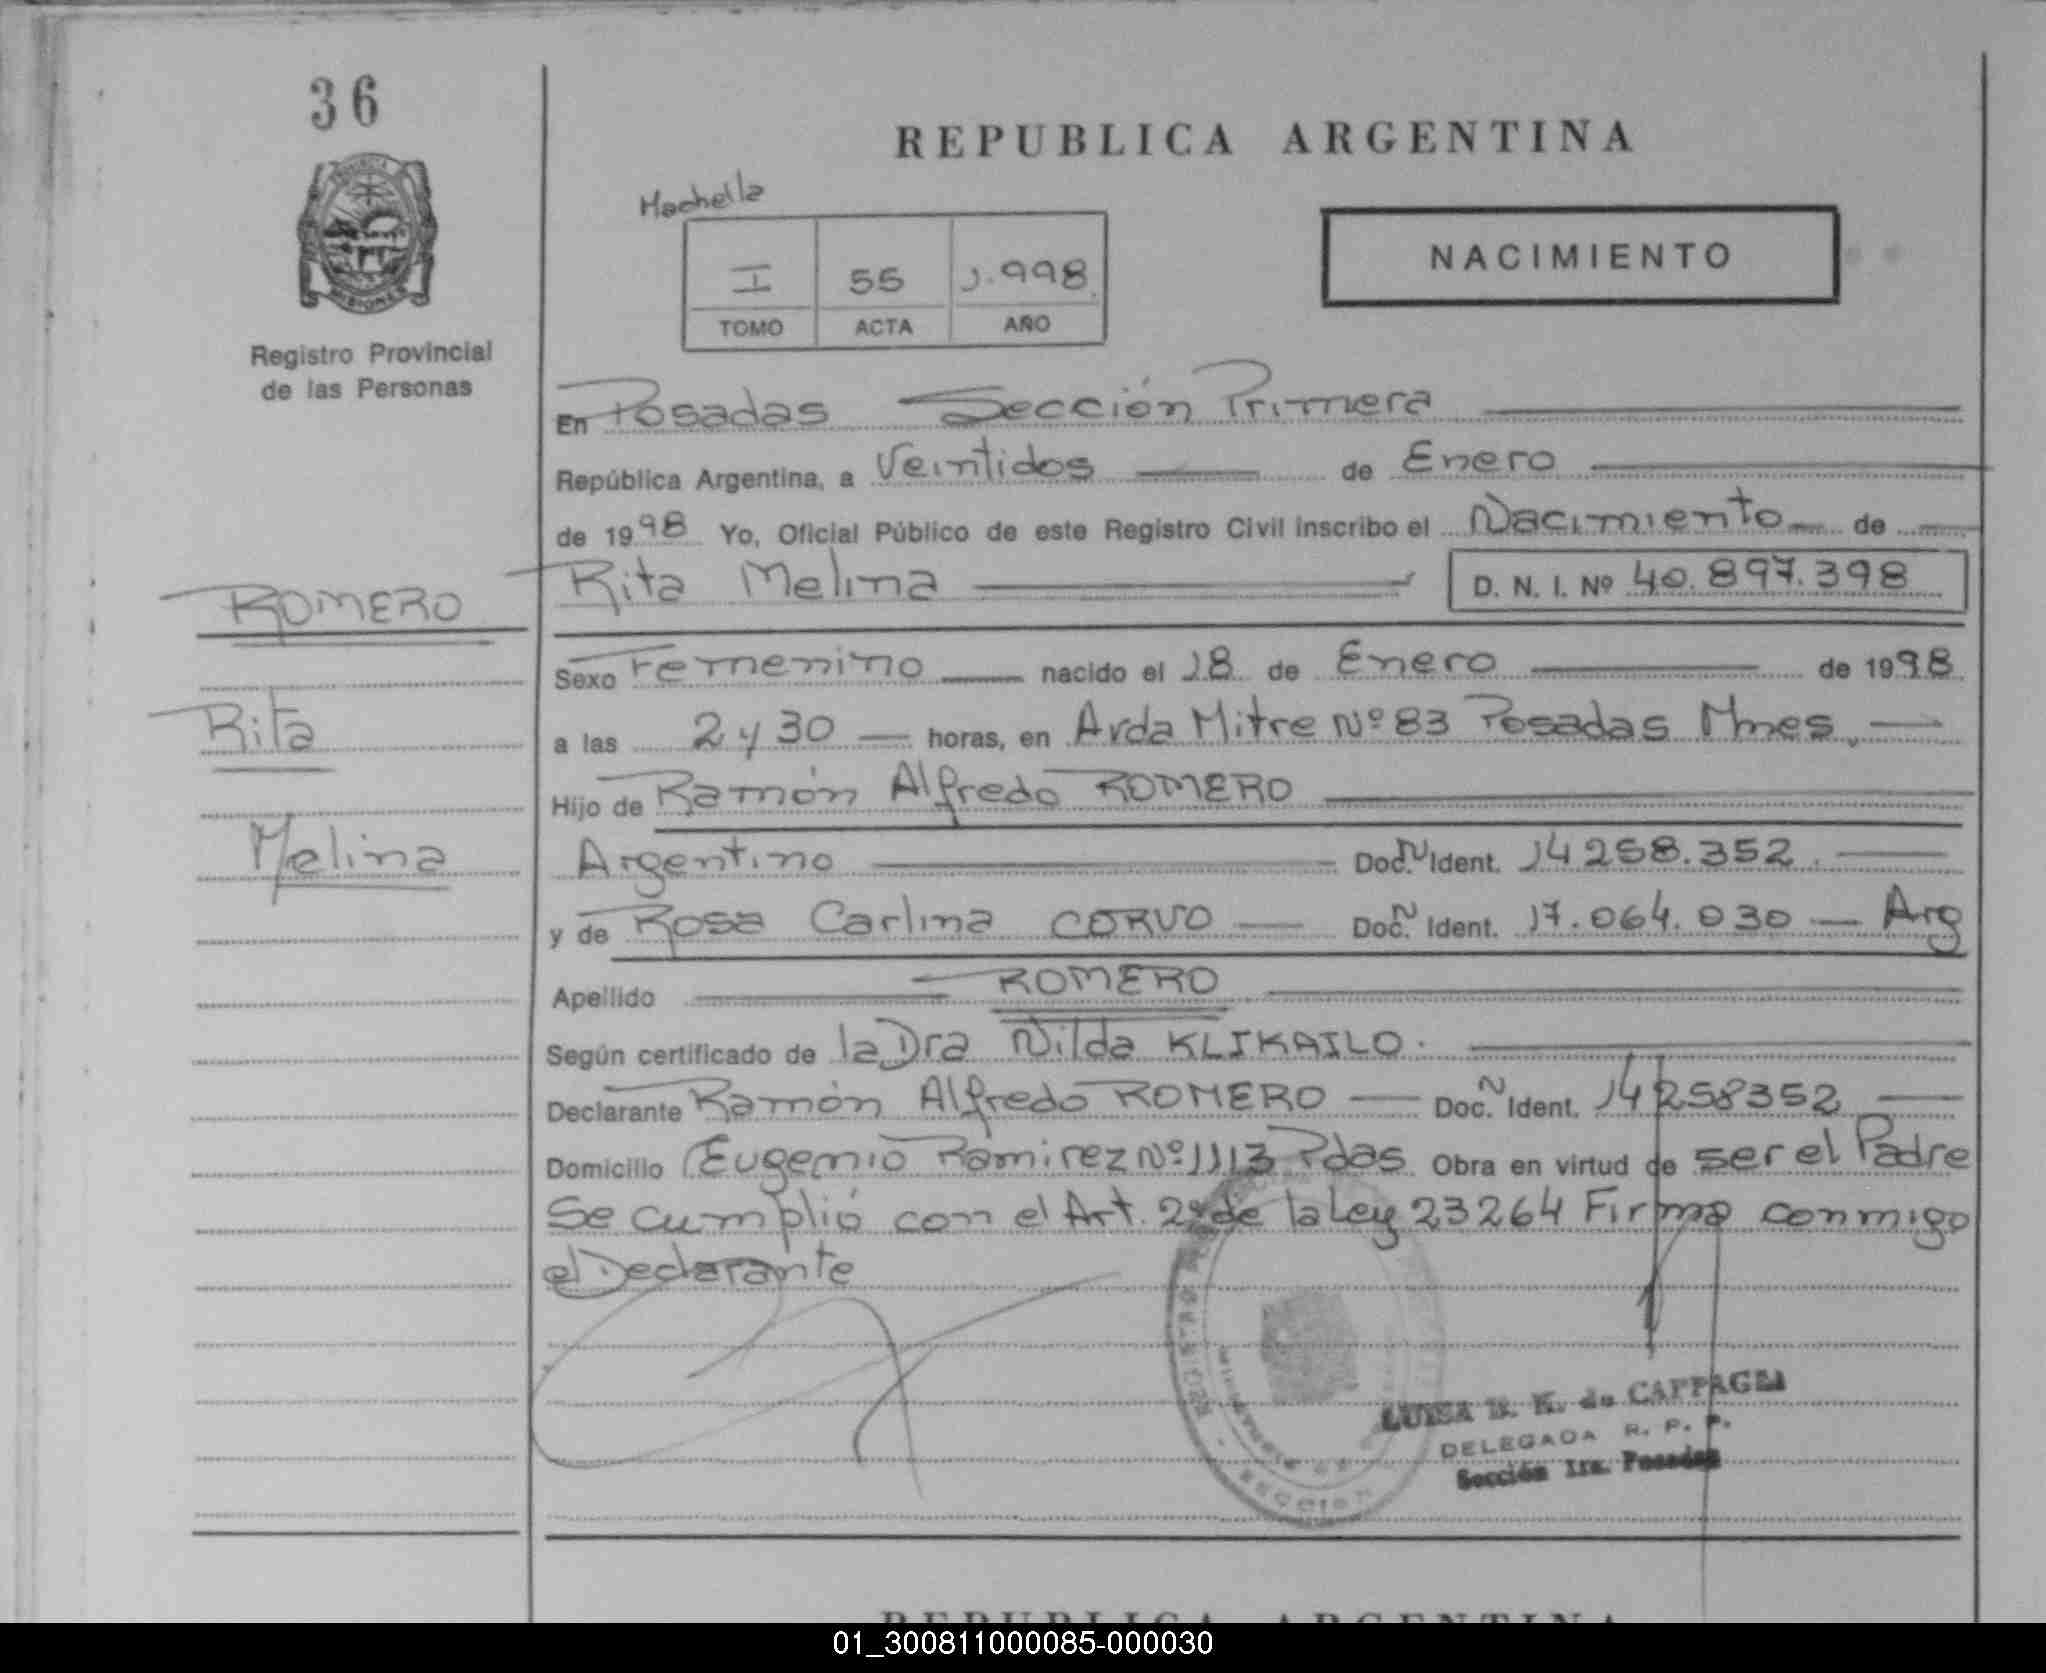 36
REPUBLICA ARGENTINA
Machella
NACIMIENTO
I 55 1.998.
TOMO ACTA AÑO
Registro Provincial
de las Personas
En Posadas Sección Primera
República Argentina, a Veintidos de Enero
de 1998 Yo, Oficial Público de este Registro Civil inscribo el Nacimiento de
ROMERO
Rita Melina D. N. I. Nº 40.897.398
Sexo Femenino nacido el 18 de Enero de 1998
Rita
a las 2 y 30 horas, en Avda Mitre Nº 83 Posadas Mnes.
Hijo de Ramón Alfredo ROMERO
Melina
Argentino Doc. Ident. 14258.352.
y de Rosa Carlina CORVO Doc. Ident. 17.064.030 Arg
Apellido ROMERO
Según certificado de la Dra Nilda KLIKAILO.
Declarante Ramón Alfredo ROMERO Doc. Ident. 14258352
Domicilio Eugenio Ramirez Nº 1113 Pdas. Obra en virtud de ser el Padre
Se cumplió con el Art. 2º de la Ley 23264 Firma conmigo
el Declarante
LUISA B. K. de CAPPAGLI
DELEGADA R. P. P.
Sección 1ra. Posadas
REPUBLICA ARGENTINA
01_300811000085-000030